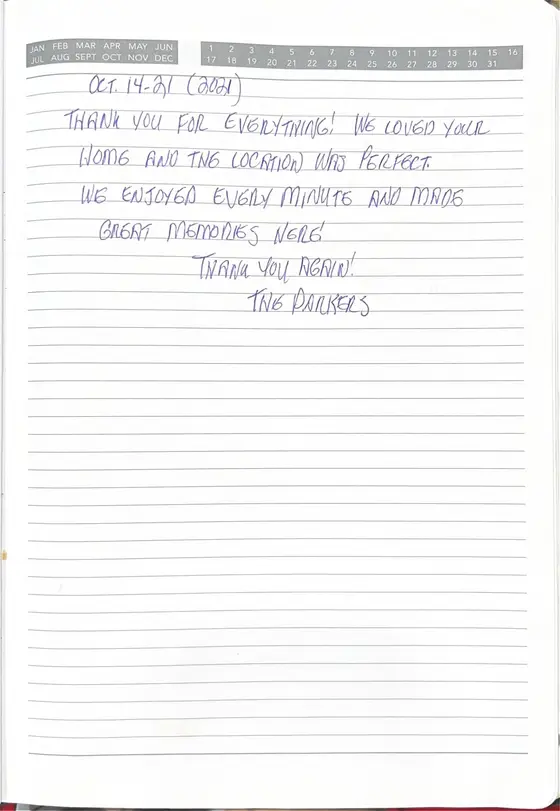 JAN FEB MAR APR MAY JUN
JUL AUG SEPT OCT NOV DEC
1 2 3 4 5 6 7 8 9 10 11 12 13 14 15 16
17 18 19 20 21 22 23 24 25 26 27 28 29 30 31
OCT. 14-21 (2021)
THANK YOU FOR EVERYTHING! WE LOVED YOUR
HOME AND THE LOCATION WAS PERFECT.
WE ENJOYED EVERY MINUTE AND MADE
GREAT MEMORIES HERE!
THANK YOU AGAIN!
THE PARKERS